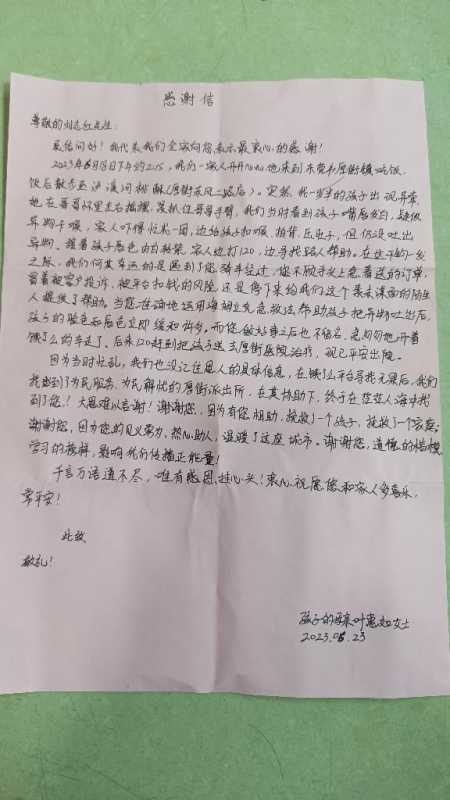 感谢信
尊敬的刘志红先生：
展信问好！我代表我们全家向您表示最衷心的感谢！
2023年6月18日下午约2:15，我们一家人开开心心地来到东莞市厚街镇吃饭，
饭后散步至泸溪河桃酥（厚街东风二路店）。突然，我一岁半的孩子出现异常，
他在哥哥怀里左右摇摆，紧抓住哥哥手臂，我们当时看到孩子嘴唇发白，疑似
异物卡喉，家人吓得忙乱一团，边给孩子扣喉、拍背、压肚子，但仍没吐出
异物。随着孩子唇色由白转紫，家人边打120，边寻找路人帮助。在这千钧一发
之际，我们何其幸运的是遇到了您骑车经过，您不顾手头上急着送的订单，
冒着被客户投诉，被平台扣钱的风险，还是停下来给我们这个素未谋面的陌生
人提供了帮助。当您准确地运用海姆立克急救法帮助孩子把异物吐出后，
孩子的脸色和唇色立即缓和许多。而您做好事之后也不留名，急匆匆地开着
饿了么的车走了。后来120赶到把孩子送去厚街医院治疗，现已平安出院。
因为当时忙乱，我们也没记住恩人的具体信息，在饿了么平台寻找无果后，我们
找到了为民服务、为民解忧的厚街派出所，在其协助下，终于在茫茫人海中找
到了您！大恩难以言谢！谢谢您，因为有您相助，挽救了一个孩子，挽救了一个家庭；
谢谢您，因为您的见义勇为，热心助人，温暖了这座城市。谢谢您，道德的楷模，
学习的榜样，影响我们传播正能量！
千言万语道不尽，唯有感恩挂心头！衷心祝愿您和家人多喜乐，
常平安！
此致
敬礼！
孩子的母亲叶惠如女士
2023.06.23